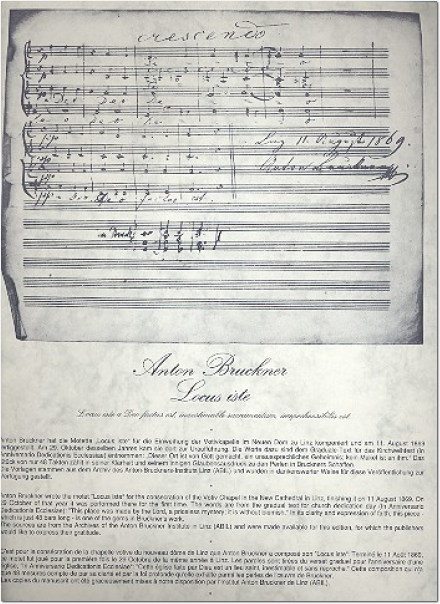 crescendo
Linz 11. August 1869.
Anton Bruckner
Anton Bruckner
Locus iste
Locus iste a Deo factus est, inaestimabile sacramentum, irreprehensibilis est.
Anton Bruckner hat die Motette „Locus iste" für die Einweihung der Votivkapelle im Neuen Dom zu Linz komponiert und am 11. August 1869
fertiggestellt. Am 29. Oktober desselben Jahres kam sie dort zur Uraufführung. Die Worte dazu sind dem Graduale Text für das Kirchweihfest (In
Anniversario Dedicationis Ecclesiae) entnommen: „Dieser Ort ist von Gott gemacht, ein unaussprechliches Geheimnis; kein Makel ist an ihm." Das
Stück von nur 48 Takten zählt in seiner Klarheit und seinem innigen Glaubensausdruck zu den Perlen in Bruckners Schaffen.
Die Vorlagen stammen aus dem Archiv des Anton Bruckner-Institute Linz (ABIL) und wurden in dankenswerter Weise für diese Veröffentlichung zur
Verfügung gestellt.
Anton Bruckner wrote the motet "Locus iste" for the consecration of the Votiv Chapel in the New Cathedral in Linz, finishing it on 11 August 1869. On
29 October of that year it was performed there for the first time. The words are from the gradual text for church dedication day (In Anniversario
Dedicationis Ecclesiae): "This place was made by the Lord, a priceless mystery, it is without blemish." In its clarity and expression of faith, this piece -
which is just 48 bars long - is one of the gems in Bruckner's work.
The sources are from the Archives of the Anton Bruckner Institute in Linz (ABIL) and were made available for this edition, for which the publishers
would like to express their gratitude.
C'est pour la consécration de la chapelle votive du nouveau dôme de Linz que Anton Bruckner a composé son "Locus iste". Terminé le 11 Août 1869,
le motet fut joué pour la première fois le 29 Octobre de la même année à Linz. Les paroles sont tirées du verset graduel pour l'anniversaire d'une
église, "In Anniversario Dedicationis Ecclesiae": "Cette église faite par Dieu est un lieu saint, inestimable et sans reproche." Cette composition qui n'a
que 48 mesures compte de par sa clarté et par la foi profonde qu'elle exhalte parmi les perles de l'œuvre de Bruckner.
Les copies du manuscript ont été gracieusement mises à notre disposition par l'Institut Anton Bruckner de Linz (ABIL).